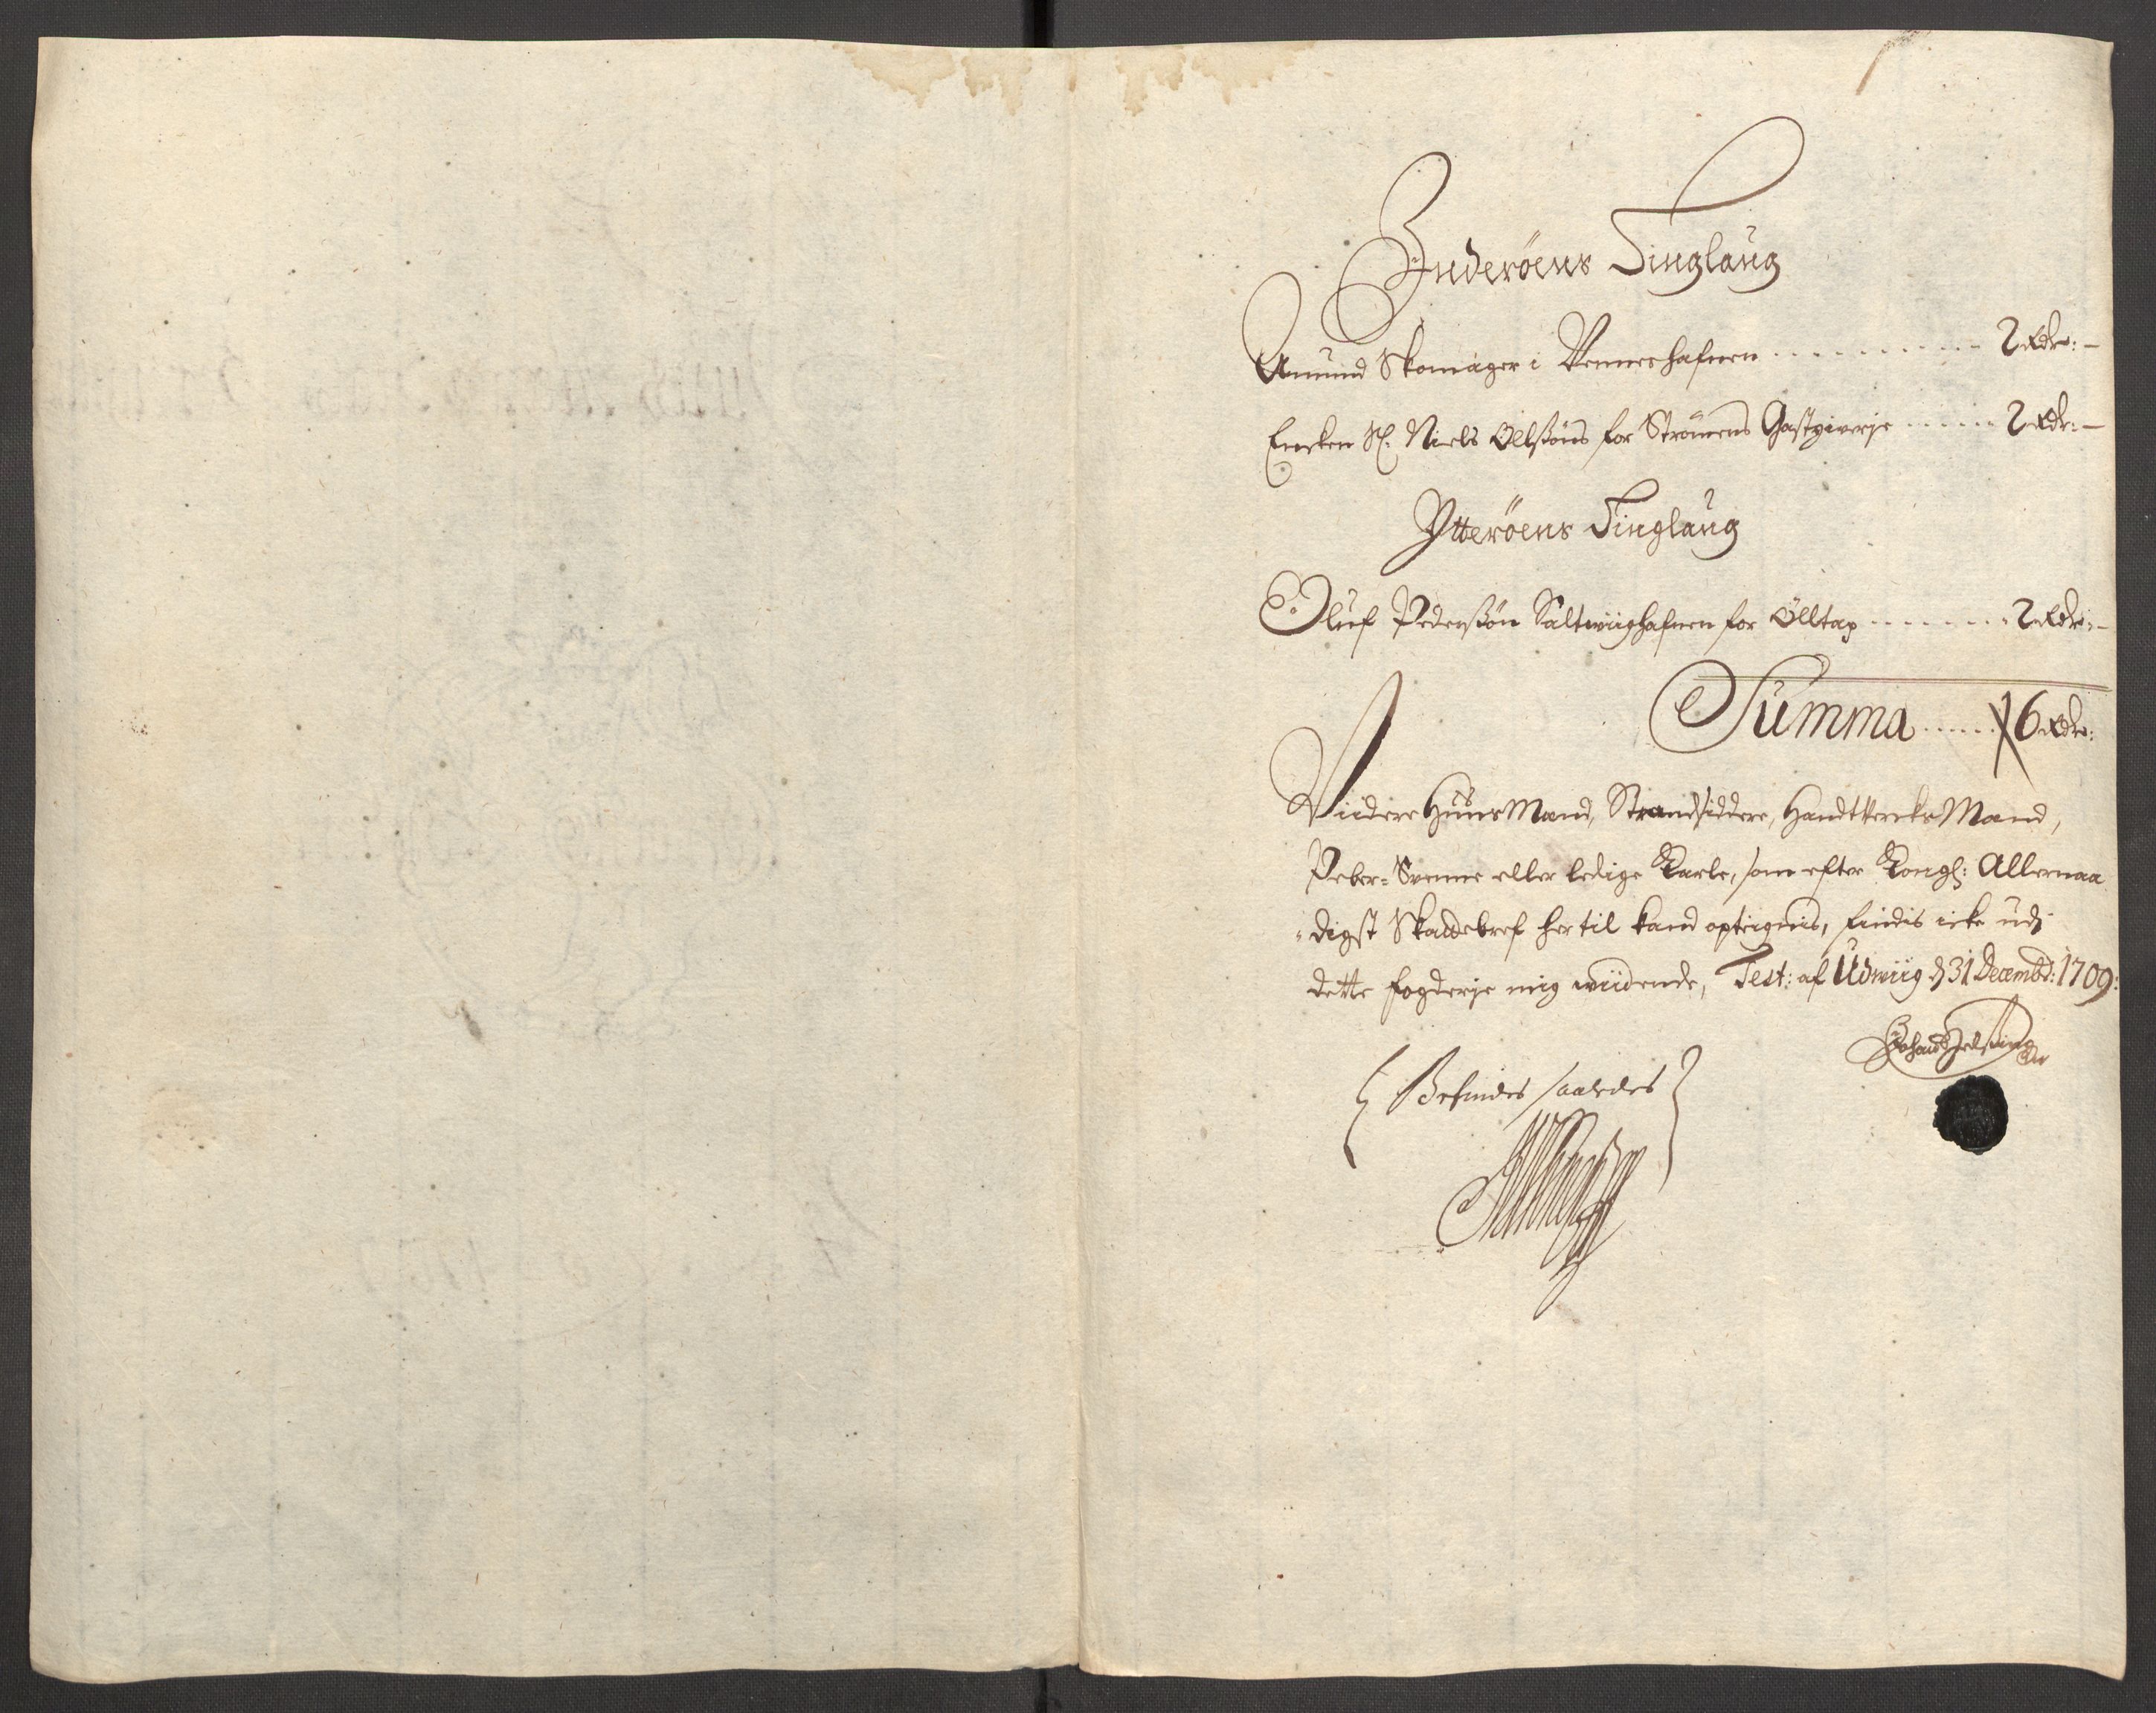 Inderöens Tinglaug
Amund Skomager i Vennershafnen ........... 2 Rdr: –
Encken Sl. Niels Ollßöns for Strömens Gästgiverje ...... 2 Rdr: –
Ytteröens Tinglaug
Oluf Pederßön Saltwiighafnen for Ölltap ........ 2 Rdr: –
Summa ..... 6 Rdr:
Viidere Huus Mænd, Strandsiddere, Handtverks Mænd,
Peber-Svenne eller ledige Karle, som efter Kongl: Allernaa
digst Skattebref her til kand optegnis, findis icke udj
dette fogderje mig wiidende, Test: af Udwiig d 31 Decembr: 1709:
Befindes saaledes